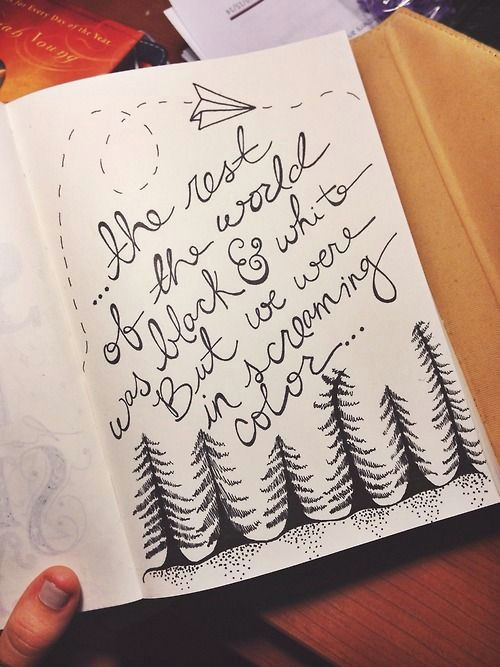 for Every Day of the Year
ah Young
...the rest
of the world
was black & white
But we were
in screaming
color...